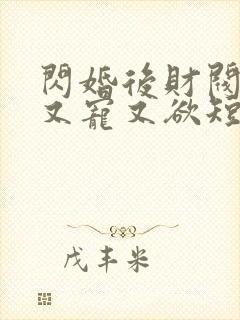 閃婚後財閥
又寵又欲短
戊丰米